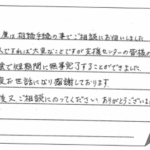 度は相続手続の事でご相談にお伺いしました
ですれば大変なことですが支援センターの皆様の
で短期間に無事完了することができました
お世話になり感謝しております
後又ご相談にのってください ありがとうございま